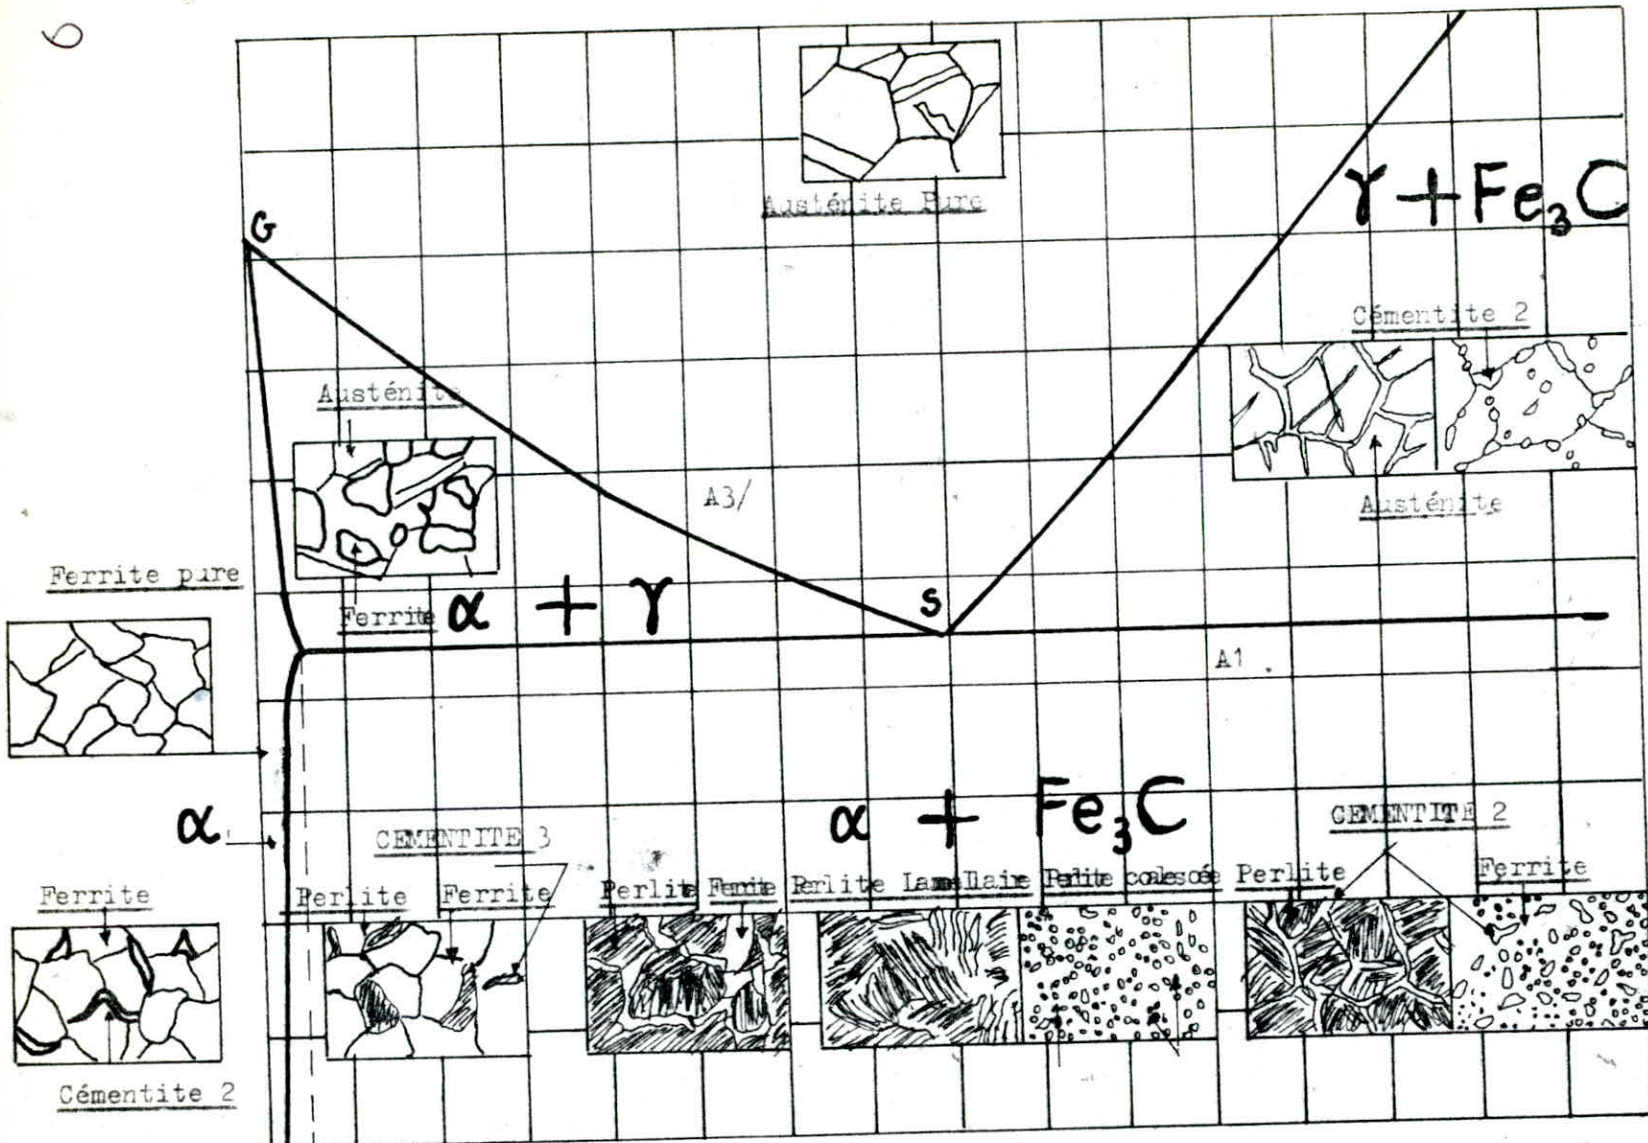 6
Austénite Pure
γ + Fe₃C
G
Cémentite 2
Austénite
A3/
Austénite
Ferrite pure
S
Ferrite
α + γ
A1
α + Fe₃C
α
CEMENTITE 3
CEMENTITE 2
Ferrite
Perlite
Ferrite
Perlite
Ferrite
Perlite Lamellaire
Perlite coalescée
Perlite
Ferrite
Cémentite 2